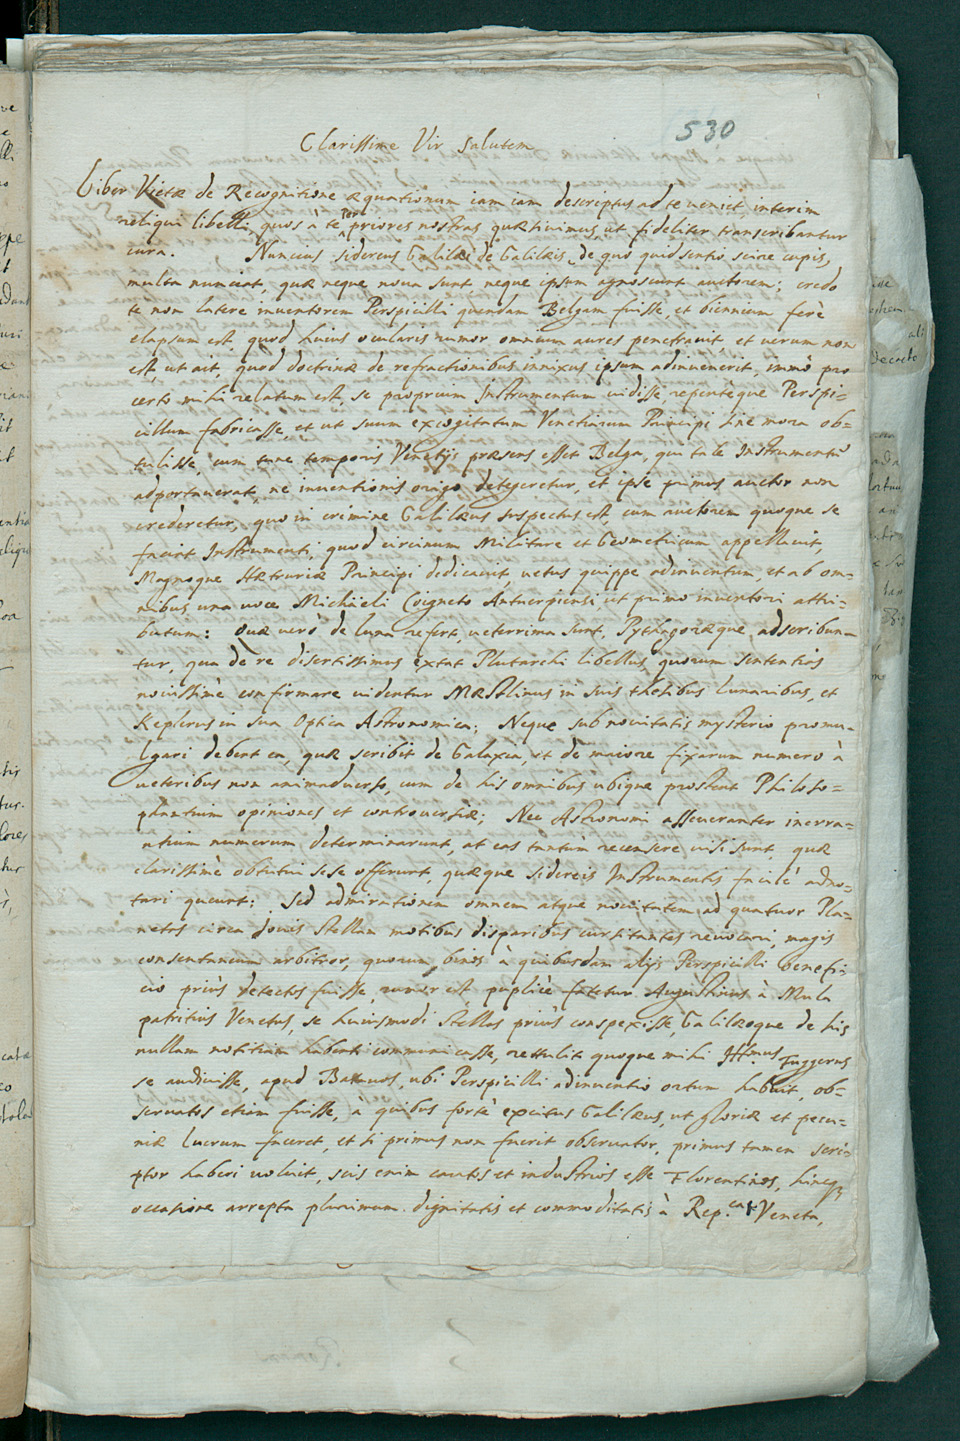 530
Clarissime Vir Salutem
Liber Vietæ de Recognitione æquationum iam iam descriptus ad te veniet, interim
reliqui libelli, quos à te per priores nostras quæsivimus, ut fideliter transcribantur
cura. Nuncius sidereus Galilæi de Galilæis, de quo quid sentio scire cupis,
multa nunciat, quæ neque nova sunt neque ipsum agnoscunt auctorem; credo
te non latere inventorem Perspicilli quendam Belgam fuisse, et biennium ferè
elapsum est quod huius ocularis rumor omnium aures penetravit et verum non
est, ut ait, quod doctrinæ de refractionibus innixus ipsum adinvenerit, immò pro
certo mihi relatum est, se proprium Instrumentum vidisse, repentèque Perspi=
cillum fabricasse, et ut suum excogitatum Venetiarum Principi sine mora ob=
tulisse, cum tunc temporis Venetijs præsens esset Belga, qui tale Instrumentū
adportaverat, ne inventionis origo detegeretur, et ipse primus auctor non
crederetur, quo in crimine Galilæus suspectus est, cum auctorem quoque se
faciat Instrumenti, quod circinum Militare et Geometricum appellavit,
Magnoque Hætruriæ Principi dedicavit, vetus quippe adinventum, et ab om=
nibus una voce Michaëli Coigneto Antuerpiensi, ut primo inventori attri=
butum: Quæ verò de luna refert, veterrima sunt, Pythagoræque adscribun=
tur, qua de re disertissimus extat Plutarchi libellus, quorum sententias
novissimè confirmare videntur Mæstlinus in suis thesibus lunaribus, et
Keplerus in sua Optica Astronomica; Neque sub novitatis mysterio promu=
lgari debent ea, quæ scribit de Galaxia, et de maiore fixarum numero à
veteribus non animadverso, cum de his omnibus ubique prostent Philoso=
phantium opiniones et controversiæ; Nec Astronomi asseveranter inerra=
ntium numerum determinarunt, at eas tantum recensere visi sunt, quæ
clarissimè obtutui sese offerunt, quæque sidereis Instrumentis facilè adno=
tari queunt; Sed admirationem omnem atque novitatem ad quatuor Pla=
netas circa Jovis Stellam motibus disparibus cursitantes revocari, magis
consentaneum arbitror, quorum binos à quibusdam alijs Perspicilli benefi=
cio priùs detectos fuisse, rumor est, puplicè fatetur Augustinus à Mula
patritius Venetus, se huiusmodi Stellas priùs conspexisse, Galilæoque de his
nullam notitiam habenti communicasse, rettulit quoque mihi Illmus Fuggerus
se audivisse, apud Batavos, ubi Perspicilli adinventio ortum habuit, ob=
servatos etiam fuisse, à quibus fortè excitus Galilæus, ut gloriæ et pecu=
niæ lucrum faceret, et si primus non fuerit observator, primus tamen scri=
ptor haberi voluit, scis enim cautos et industrios esse Florentinos, hincq
occasione arrepta plurimum dignitatis et commoditatis à Rep.ca Veneta,